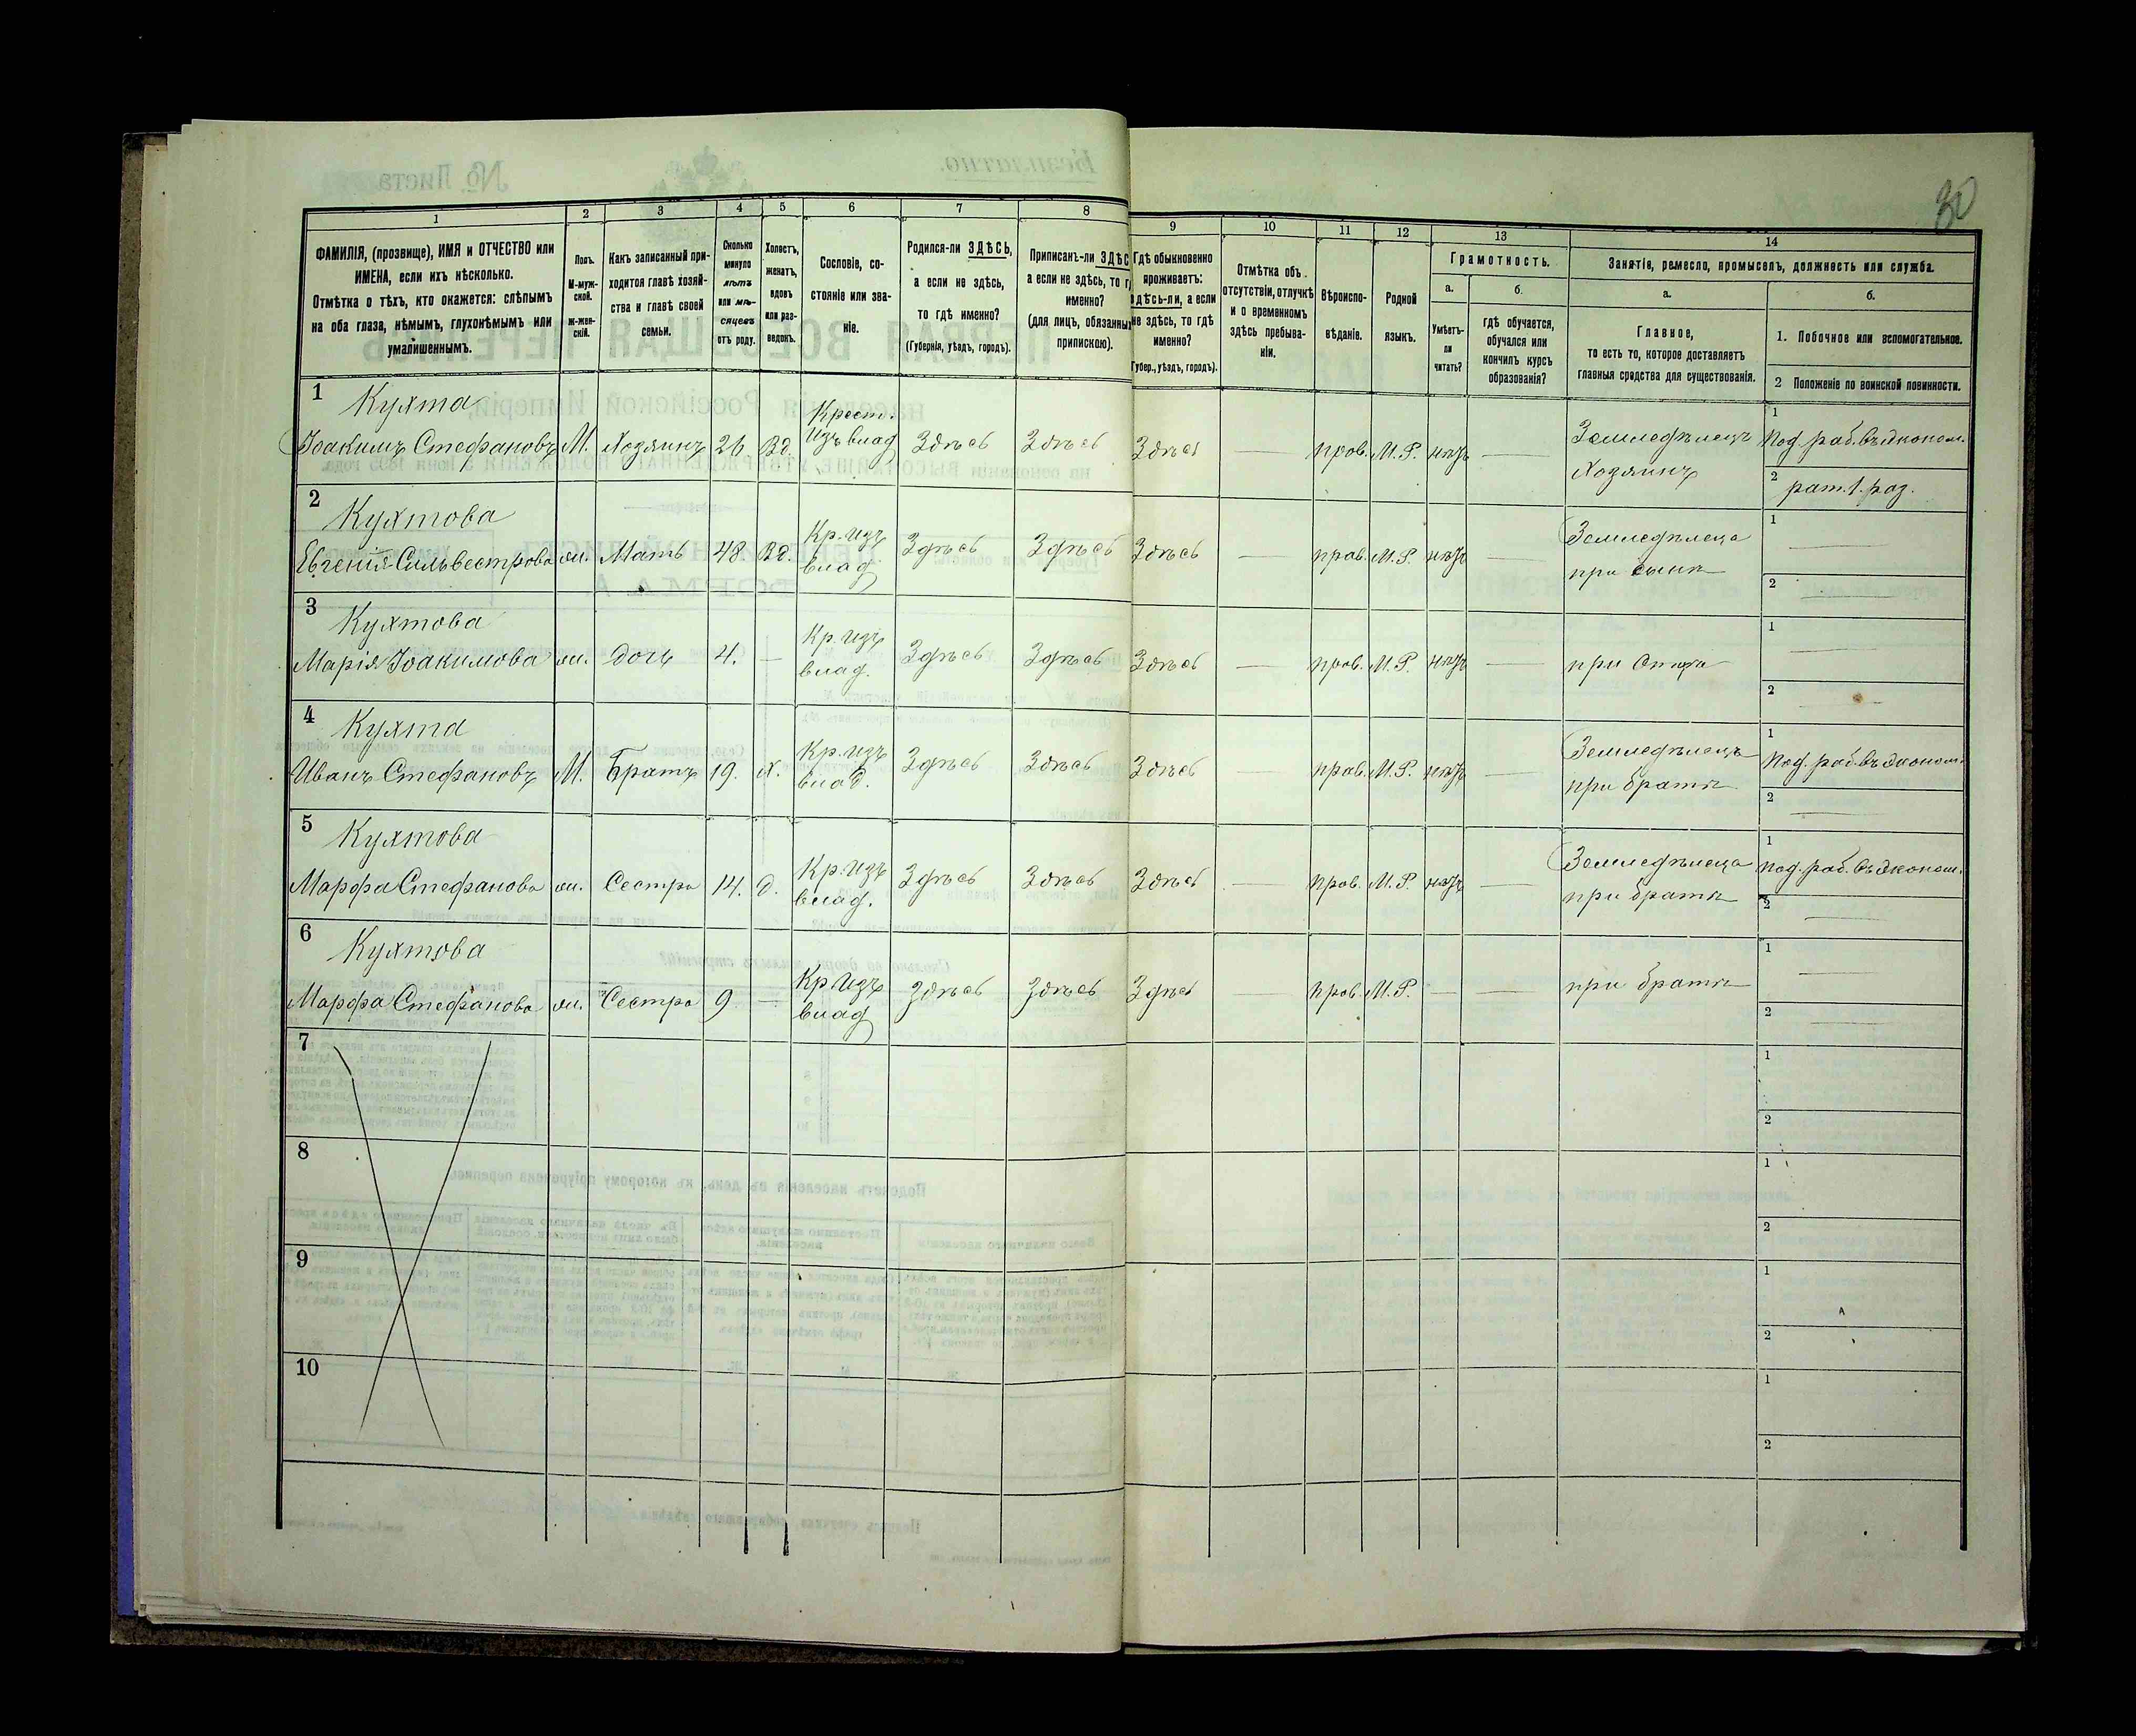 30
1 2 3 4 5 6 7 8 9 10 11 12 13 14
ФАМИЛІЯ, (прозвище), ИМЯ и ОТЧЕСТВО или
ИМЕНА, если ихъ нѣсколько.
Отмѣтка о тѣхъ, кто окажется: слѣпымъ
на оба глаза, нѣмымъ, глухонѣмымъ или
умалишеннымъ.
Полъ.
М-муж-
ской.
Ж-жен-
скій.
Какъ записанный при-
ходится главѣ хозяй-
ства и главѣ своей
семьи.
Сколько
минуло
лѣтъ
или мѣ-
сяцевъ
отъ роду.
Холостъ,
женатъ,
вдовъ
или раз-
веденъ.
Сословіе, со-
стояніе или зва-
ніе.
Родился-ли ЗДѢСЬ,
а если не здѣсь,
то гдѣ именно?
(Губернія, уѣздъ, городъ).
Приписанъ-ли ЗДѢС
а если не здѣсь, то г
именно?
(для лицъ, обязанных
припискою).
Гдѣ обыкновенно
проживаетъ:
здѣсь-ли, а если
не здѣсь, то гдѣ
именно?
Губер., уѣздъ, городъ).
Отмѣтка объ
отсутствіи, отлучкѣ
и о временномъ
здѣсь пребыва-
ніи.
Вѣроиспо-
вѣданіе.
Родной
языкъ.
Грамотность.
а.
Умѣетъ-
ли
читать?
б.
гдѣ обучается,
обучался или
кончилъ курсъ
образованія?
Занятіе, ремесло, промыселъ, должность или служба.
а.
Главное,
то есть то, которое доставляетъ
главныя средства для существованія.
б.
1. Побочное или вспомогательное.
2 Положеніе по воинской повинности.
1 Кухта
Іоакимъ Стефановъ М. Хозяинъ 26 Вд.
Крест.
Изъ влад
Здѣсь Здѣсь Здѣсь — прав. М.Р. нѣтъ —
Земледѣлецъ
Хозяинъ
1 Под. раб. въ эконом.
2 рат. 1. раз.
2 Кухтова
Евгенія Сильвестрова ж. Мать 48. Вд.
Кр. изъ
влад
Здѣсь Здѣсь Здѣсь — прав. М.Р. нѣтъ —
Земледѣлеца
при сынѣ
1 —
2 —
3 Кухтова
Марія Іоакимова ж. дочь 4. —
Кр. изъ
влад.
Здѣсь Здѣсь Здѣсь — прав. М.Р. нѣтъ —
при Отцѣ
1 —
2 —
4 Кухта
Иванъ Стефановъ М. Братъ 19. Х.
Кр. изъ
влад.
Здѣсь Здѣсь Здѣсь — прав. М.Р. нѣтъ —
Земледѣлецъ
при братѣ
1 Под. раб. въ эконом.
2 —
5 Кухтова
Марфа Стефанова ж. Сестра 14. д.
Кр. изъ
влад.
Здѣсь Здѣсь Здѣсь — прав. М.Р. нѣтъ —
Земледѣлеца
при братѣ
1 Под. раб. въ эконом.
2 —
6 Кухтова
Марфа Стефанова ж. Сестра 9 —
Кр изъ
влад
Здѣсь Здѣсь Здѣсь — прав. М.Р. — —
при братѣ
1 —
2 —
7
1
2
8
1
2
9
1
2
10
1
2